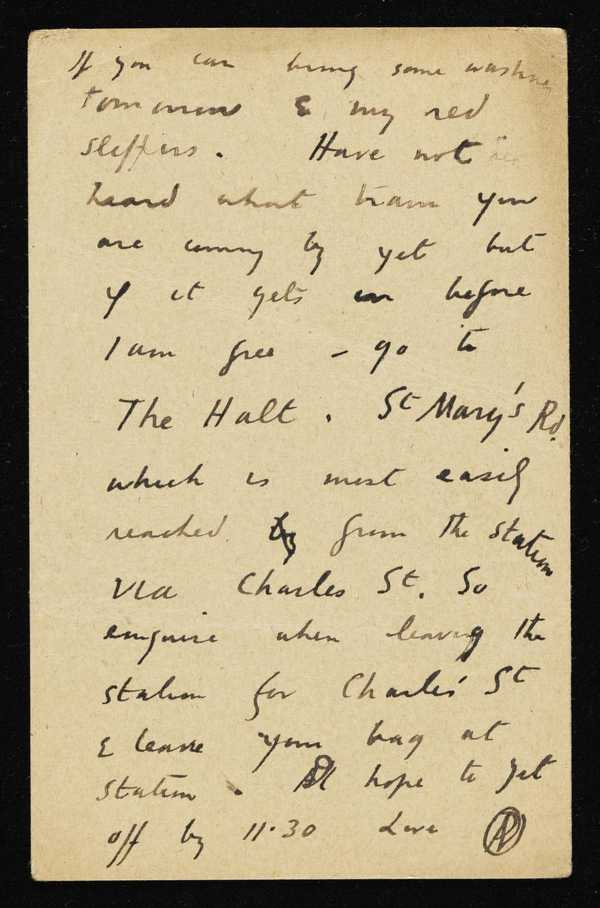 If you can bring some washing
tomorrow & my red
slippers. Have not
heard what train you
are coming by yet but
if it gets in before
I am free – go to
The Halt. St Mary's Rd.
which is most easily
reached from the station
via Charles St. So
enquire when leaving the
station for Charles' St
& leave your bag at
station. I hope to get
off by 11.30 Love